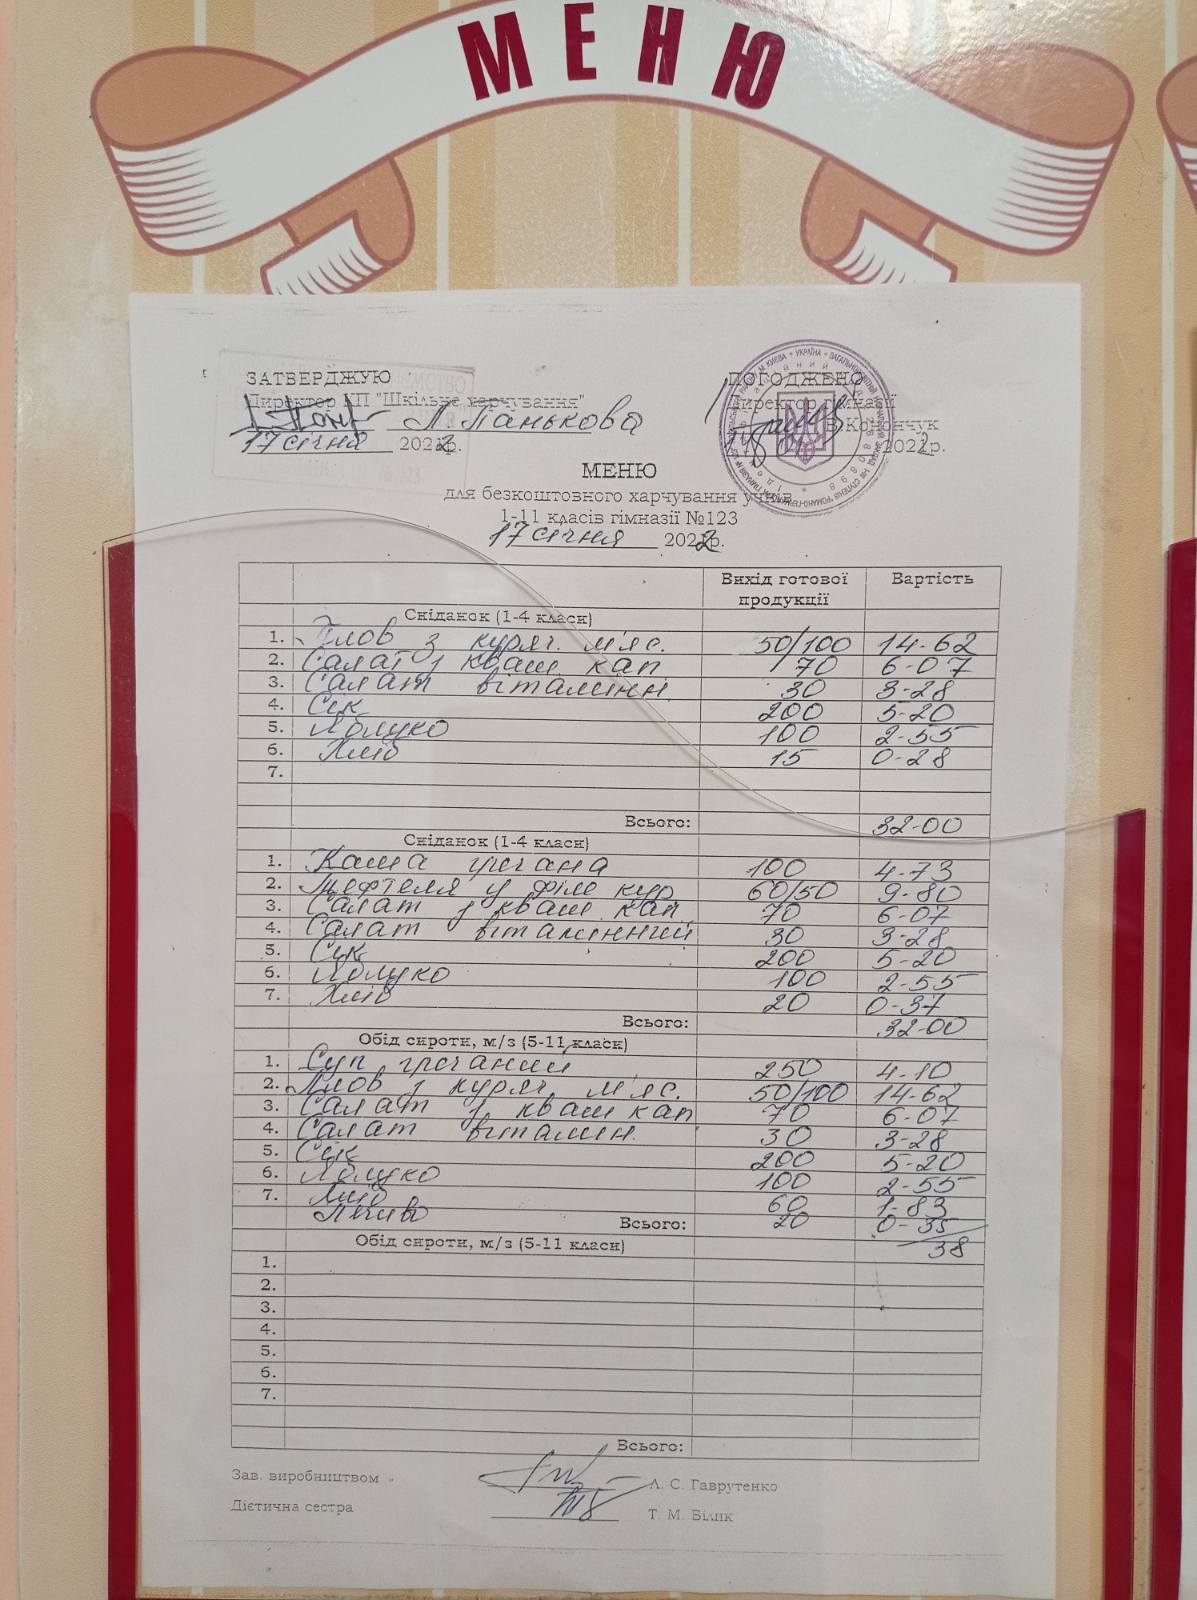 МЕНЮ
ЗАТВЕРДЖУЮ
Директор КП "Шкільне харчування"
Л. Панькова
17 січня 2022р.
ПОГОДЖЕНО
Директор гімназії
В.Конончук
2022р.
МЕНЮ
для безкоштовного харчування учнів
1-11 класів гімназії №123
17 січня 2022р.
Вихід готової продукції Вартість
Сніданок (1-4 класи)
1. Плов з куряч. м'яс. 50/100 14-62
2. Салат з кваш кап 70 6-07
3. Салат вітамінн 30 3-28
4. Сік 200 5-20
5. Яблуко 100 2-55
6. Хліб 15 0-28
7.
Всього: 32-00
Сніданок (1-4 класи)
1. Каша гречана 100 4-73
2. Тефтеля у філе кур 60/50 9-80
3. Салат з кваш. кап. 70 6-07
4. Салат вітамінний 30 3-28
5. Сік 200 5-20
6. Яблуко 100 2-55
7. Хліб 20 0-37
Всього: 32-00
Обід сироти, м/з (5-11 класи)
1. Суп гречаний 250 4-10
2. Плов з куряч. м'яс. 50/100 14-62
3. Салат з кваш кап 70 6-07
4. Салат вітамін. 30 3-28
5. Сік 200 5-20
6. Яблуко 100 2-55
7. Хліб 60 1-83
Печиво Всього: 20 0-35
38
Обід сироти, м/з (5-11 класи)
1.
2.
3.
4.
5.
6.
7.
Всього:
Зав. виробництвом Л. С. Гаврутенко
Дієтична сестра Т. М. Білик